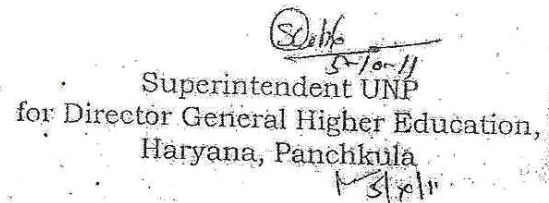 5-10-11
Superintendent UNP
for Director General Higher Education,
Haryana, Panchkula